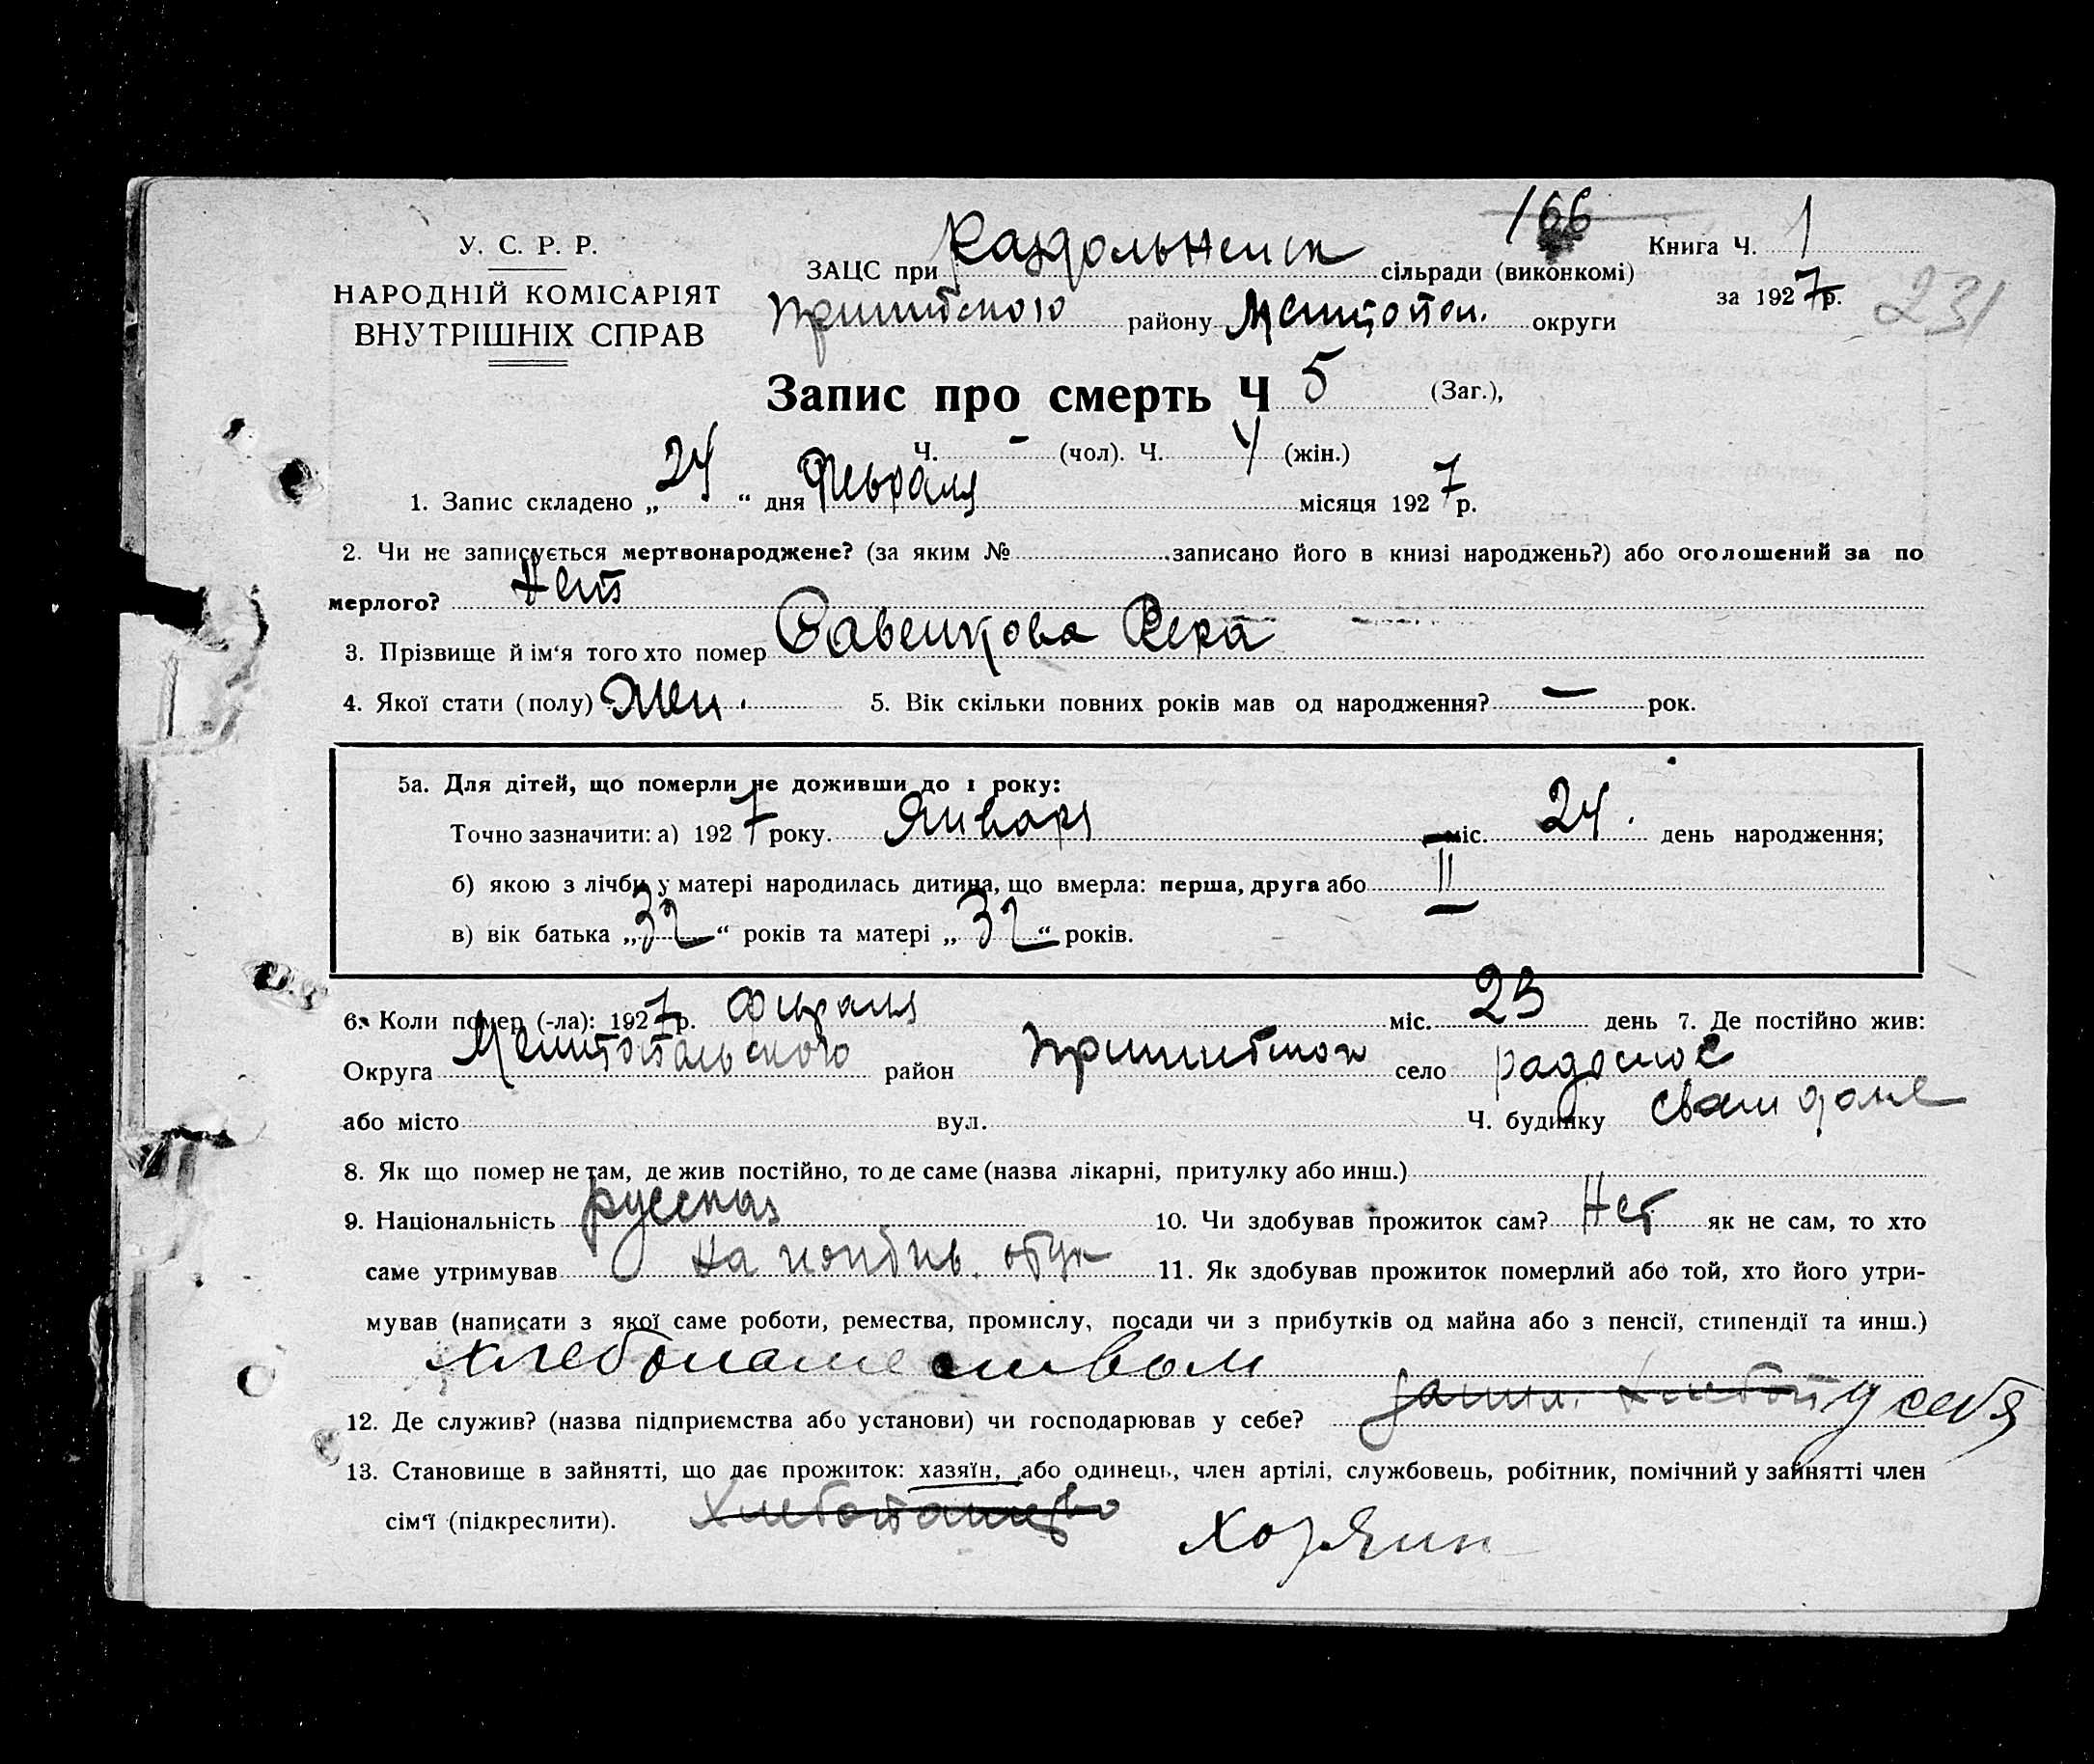 166
У. С. Р. Р.
НАРОДНІЙ КОМІСАРІЯТ
ВНУТРІШНІХ СПРАВ
ЗАЦС при Раздольненск сільради (виконкомі)
Книга Ч. 1
за 1927 р.
231
Пришибского району Мелитопол. округи
Запис про смерть Ч 5 (Заг.),
Ч. - (чол). Ч. 4 (жін.)
1. Запис складено „ 24 “ дня Февраля місяця 1927 р.
2. Чи не записується мертвонароджене? (за яким № записано його в книзі народжень?) або оголошений за по
мерлого? Нет
3. Прізвище й ім‘я того хто помер Савенкова Вера
4. Якої стати (полу) Жен. 5. Вік скільки повних років мав од народження? — рок.
5а. Для дітей, що померли не доживши до 1 року:
Точно зазначити: а) 1927 року. Января міс. 24. день народження;
б) якою з лічби у матері народилась дитина, що вмерла: перша, друга або II
в) вік батька „ 32 “ років та матері „ 32 “ років.
6. Коли помер (-ла): 1927 р. Февраля міс. 23 день 7. Де постійно жив:
Округа Мелитопольского район Пришибском село
або місто вул. Ч. будинку
8. Як що помер не там, де жив постійно, то де саме (назва лікарні, притулку або инш.)
9. Національність русская 10. Чи здобував прожиток сам? Нет як не сам, то хто
саме утримував на 11. Як здобував прожиток померлий або той, хто його утри-
мував (написати з якої саме роботи, ремества, промислу, посади чи з прибутків од майна або з пенсії, стипендії та инш.)
хлебопашеством
12. Де служив? (назва підприємства або установи) чи господарював у себе? у себя
13. Становище в зайнятті, що дає прожиток: хазяїн, або одинець, член артілі, службовець, робітник, помічний у зайнятті член
сім‘ї (підкреслити). Хлебопашество Хозяин